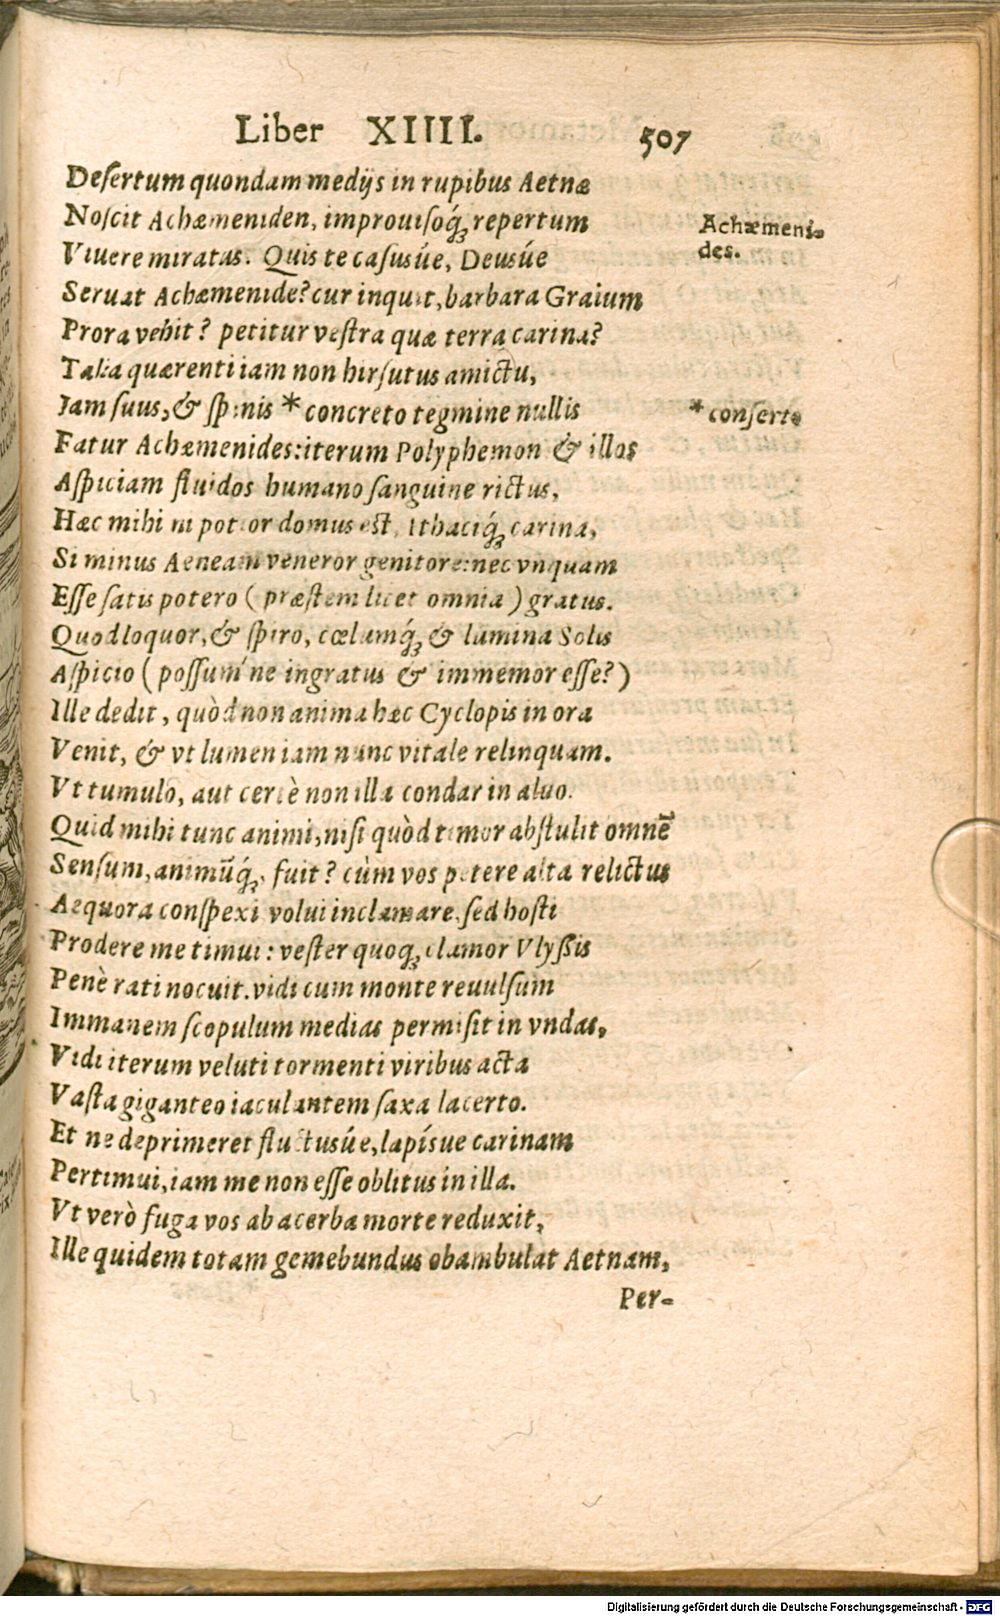 Liber XIIII. 507
Deſertum quondam medijs in rupibus Aetnæ
Noſcit Achæmeniden, improuiſoq́ꝫ repertum
Achæmeni-
des.
Viuere miratas. Quis te caſusúe, Deusúe
Seruat Achæmenide? cur inquit, barbara Graium
Prora vehit? petitur veſtra quæ terra carina?
Talia quærenti iam non hirſutus amictu,
Iam ſuus, & ſpinis * concreto tegmine nullis
* conſerto
Fatur Achæmenides: iterum Polyphemon & illos
Aſpiciam fluidos humano ſanguine rictus,
Hæc mihi ni potior domus eſt, Ithaciq́ꝫ carina,
Si minus Aeneam veneror genitore: nec vnquam
Eſſe ſatis potero (præſtem licet omnia) gratus.
Quod loquor, & ſpiro, cœlumq́ꝫ & lumina Solis
Aſpicio (poſſum'ne ingratus & immemor eſſe?)
Ille dedit, quòd non anima hæc Cyclopis in ora
Venit, & vt lumen iam nunc vitale relinquam.
Vt tumulo, aut certè non illa condar in aluo.
Quid mihi tunc animi, niſi quòd timor abſtulit omnē
Senſum, animūq́ꝫ, fuit? cùm vos petere alta relictus
Aequora conſpexi volui inclamare, ſed hoſti
Prodere me timui: veſter quoqꝫ clamor Vlyſſis
Penè rati nocuit. vidi cum monte reuulſum
Immanem ſcopulum medias permiſit in vndas,
Vidi iterum veluti tormenti viribus acta
Vaſta giganteo iaculantem ſaxa lacerto.
Et ne deprimeret fluctusúe, lapísue carinam
Pertimui, iam me non eſſe oblitus in illa.
Vt verò fuga vos ab acerba morte reduxit,
Ille quidem totam gemebundus obambulat Aetnam,
Per-
Digitalisierung gefördert durch die Deutsche Forschungsgemeinschaft - DFG